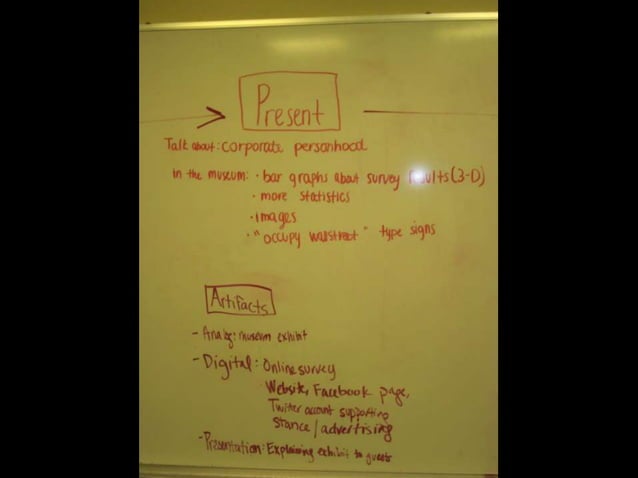 Present
Talk about: corporate personhood
In the museum: · bar graphs about survey results (3-D)
· more statistics
· images
· "occupy wallstreet" type signs
Artifacts
- Analog: museum exhibit
- Digital: Online survey
Website, Facebook page,
Twitter account supporting
stance / advertising
- Presentation: Explaining exhibit to guests